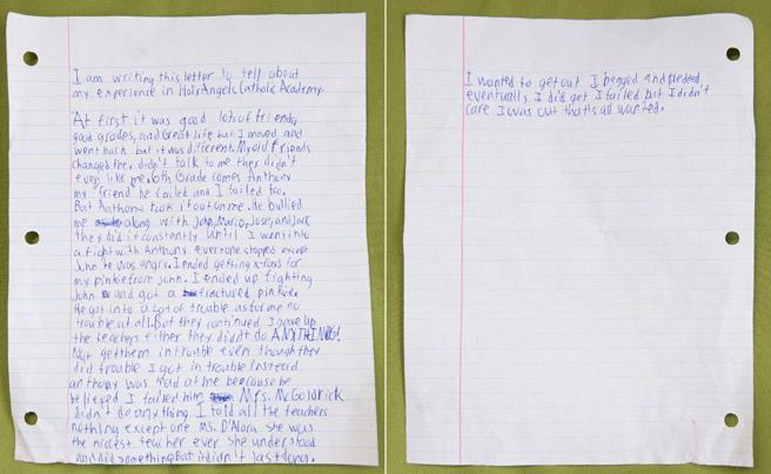 I am writing this letter to tell about
my experience in Holy Angels Catholic Academy.
At first it was good lots of friends,
good grades, and Great life but I moved and
went back but it was different. My old friends
changed they didn't talk to me they didn't
even like me. 6th Grade comes Anthony
my friend he failed and I failed too.
But Anthony took it out on me. He bullied
me along with John, Marco, Jose, and Jack
they did it constantly until I went into
a fight with Anthony everyone stopped except
John he was angry. I ended getting x-rays for
my pinkie from John. I ended up fighting
John and got a fractured pinkie.
He got into a Lot of trouble as for me no
trouble at all. But they continued I gave up
the teachers either they didn't do ANYTHING!
Not get them in trouble even though they
did trouble I got in trouble Instead
anthony was mad at me because he
believed I failed him Mrs. McGoldrick
didn't do anything I told all the teachers
nothing except one Ms. D'Alora she was
the nicest teacher ever she understood
and did something But it didn't last long.
I wanted to get out I begged and pleaded
eventually I did get I failed but I didn't
care I was out that's all wanted.